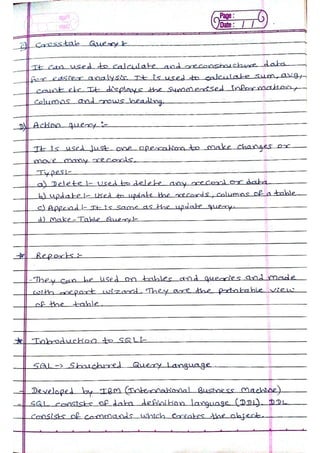 Page:
Date: / /
Crosstab Query:-
It can used to calculate and reconstructure data
for easier analysis. It is used to calculate sum, avg,
count etc It displays the summerised information,
columns and rows heading.
Action query :-
It is used just one operation to make changes or
move many records.
Types:-
a) Delete :- Used to delete any record or data.
b) update :- Used to update the records, columns of a table
c) Append :- It is same as the update query.
d) Make-Table Query:-
* Reports :-
- They can be used on tables and queries and made
with report wizard. They are the printable view
of the table.
* Introduction to SQL:-
SQL -> Structured Query Language.
- Developed by IBM (International Business Machine)
- SQL consists of data definition language (DDL). DDL
consists of commands which creates the object.